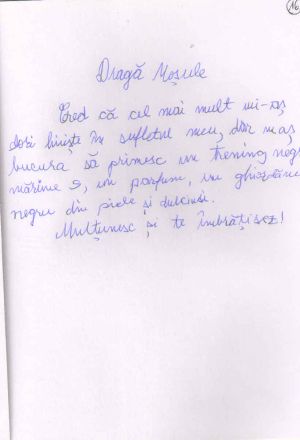 16
Dragă Moșule
Cred că cel mai mult mi-aș
dori liniște în sufletul meu, dar m-aș
bucura să primesc un trening negru
mărime S, un parfum, un ghiozdan
negru din piele și dulciuri.
Mulțumesc și te îmbrățișez!